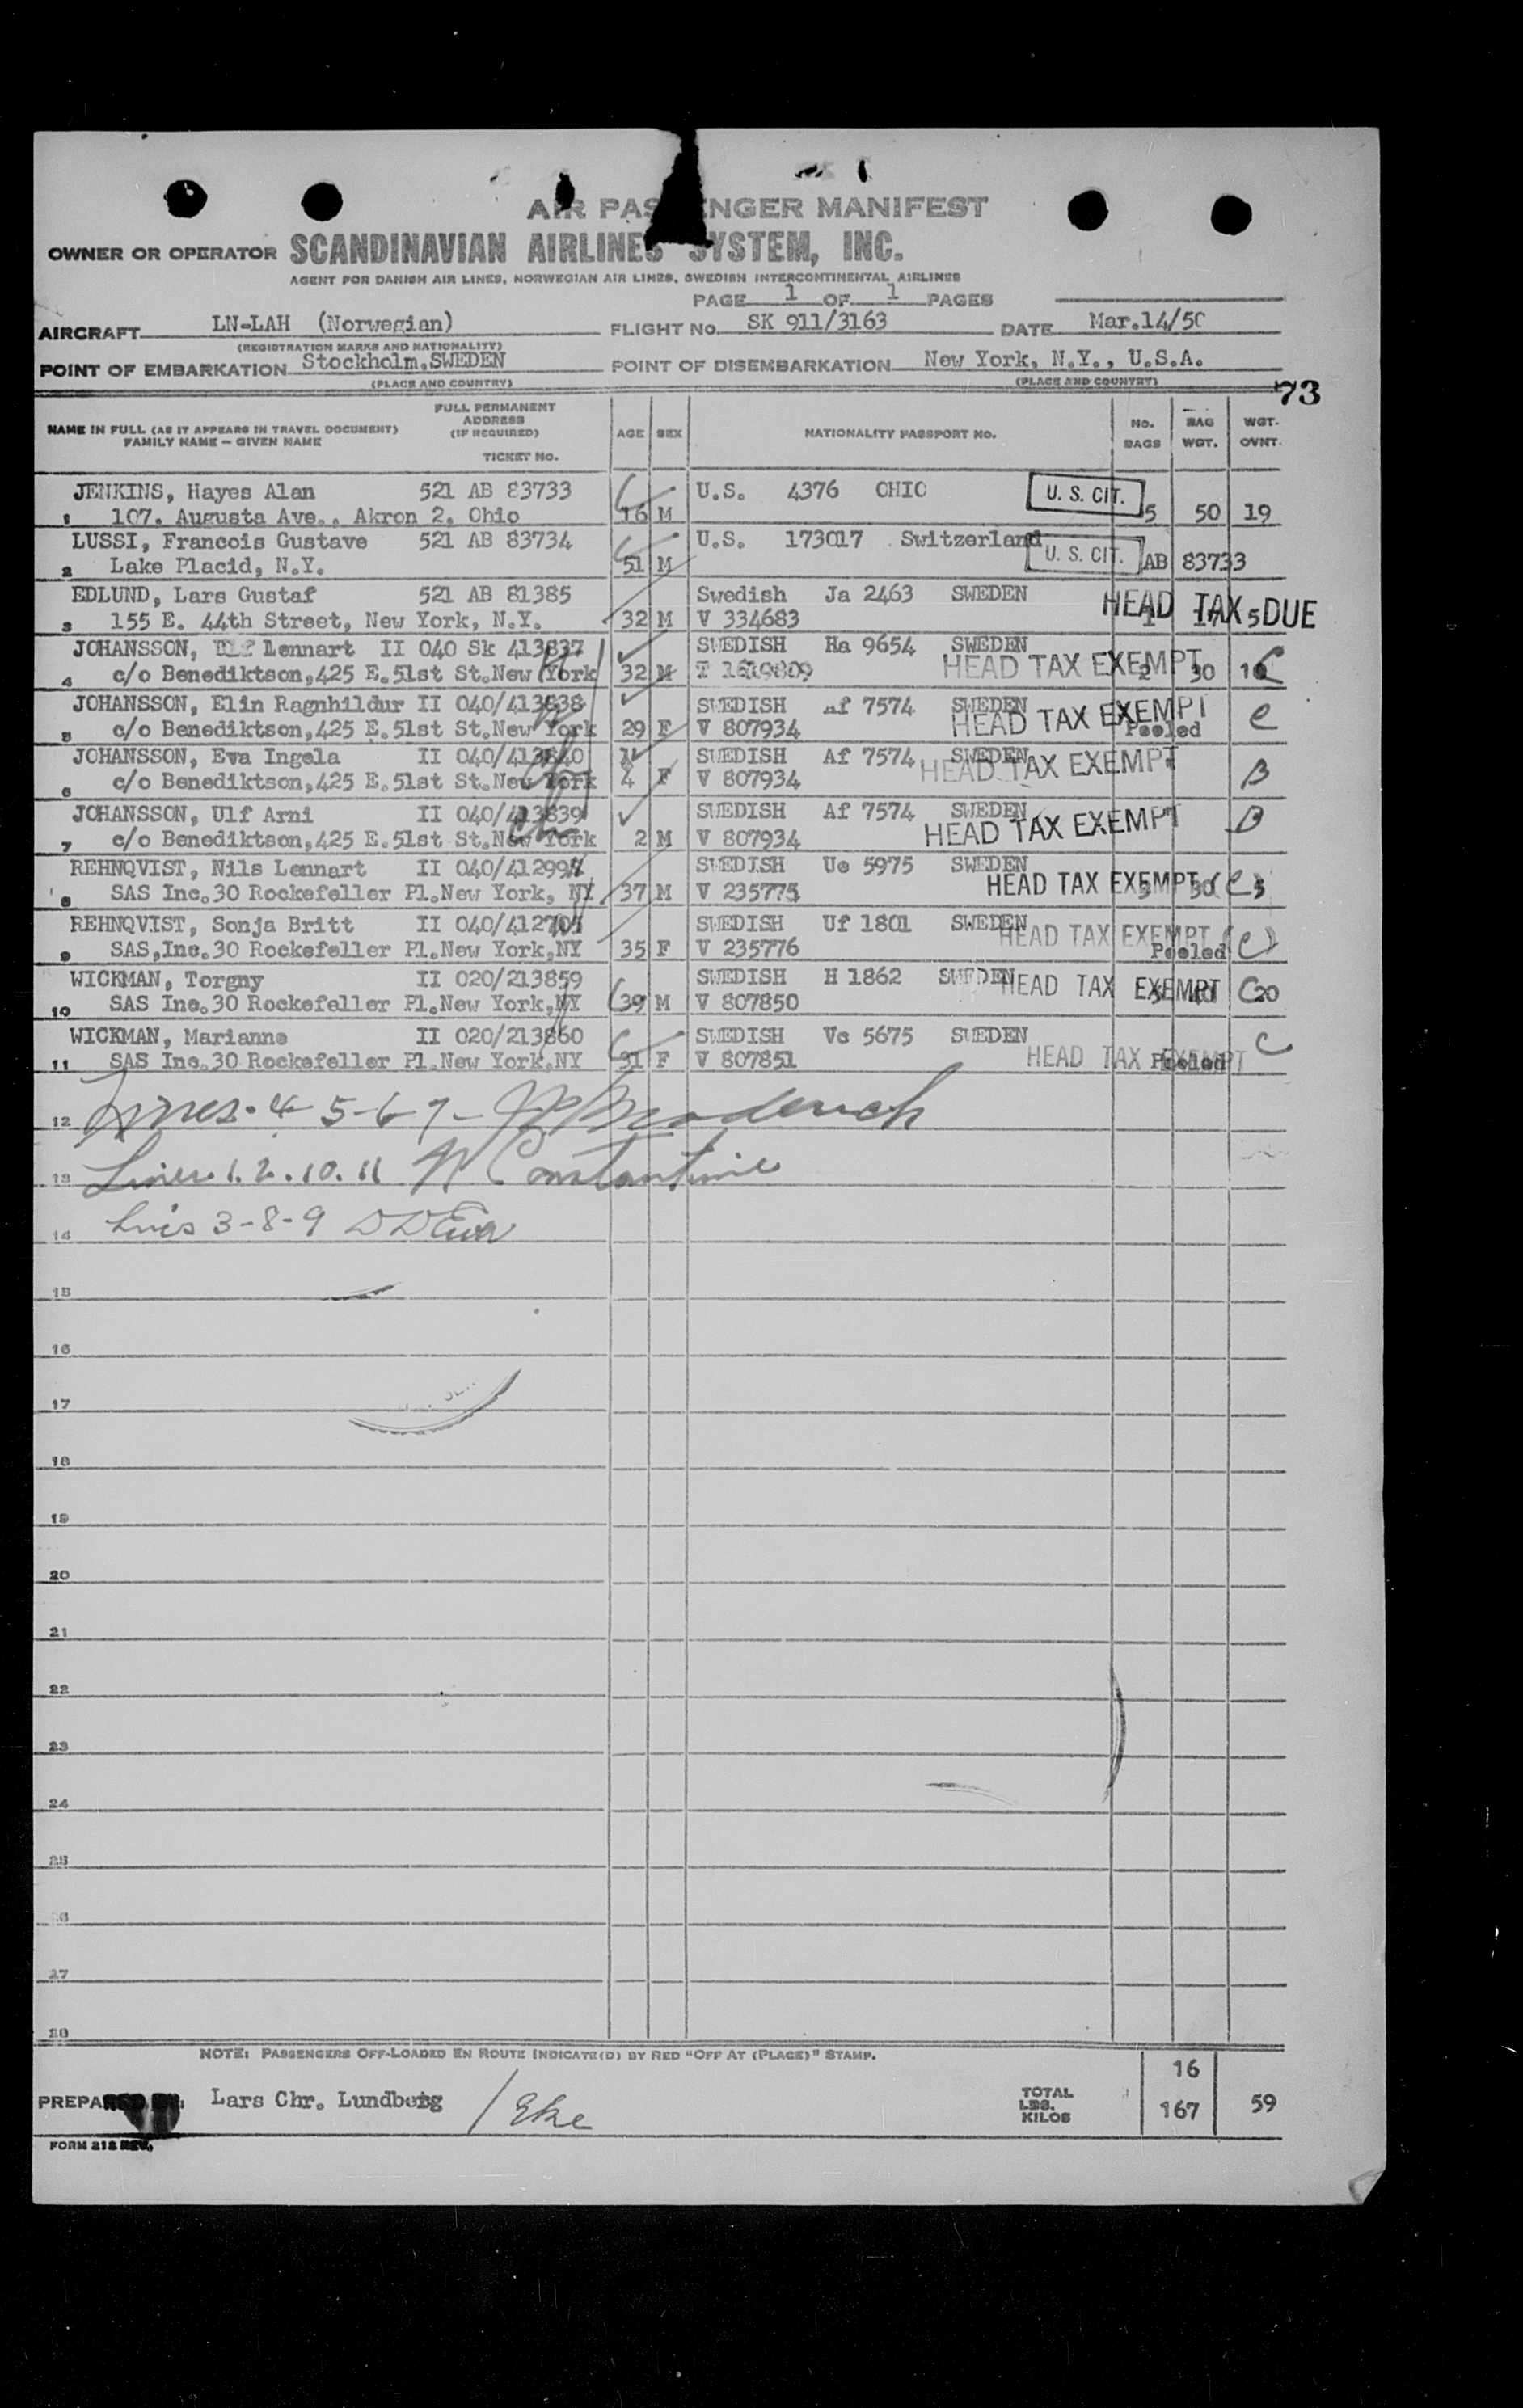 AIR PASSENGER MANIFEST
OWNER OR OPERATOR SCANDINAVIAN AIRLINES SYSTEM, INC.
AGENT FOR DANISH AIR LINES, NORWEGIAN AIR LINES, SWEDISH INTERCONTINENTAL AIRLINES
PAGE 1 OF 1 PAGES
AIRCRAFT LN-LAH (Norwegian) FLIGHT NO. SK 911/3163 DATE Mar.14/50
(REGISTRATION MARKS AND NATIONALITY)
POINT OF EMBARKATION Stockholm,SWEDEN POINT OF DISEMBARKATION New York, N.Y., U.S.A.
(PLACE AND COUNTRY) (PLACE AND COUNTRY)
73
NAME IN FULL (AS IT APPEARS IN TRAVEL DOCUMENT) FAMILY NAME - GIVEN NAME FULL PERMANENT ADDRESS (IF REQUIRED) TICKET No. AGE SEX NATIONALITY PASSPORT NO. No. BAGS BAG WGT. WGT. OVNT.
JENKINS, Hayes Alan 521 AB 83733 U.S. 4376 OHIO U. S. CIT.
1 107. Augusta Ave., Akron 2, Ohio 16 M 5 50 19
LUSSI, Francois Gustave 521 AB 83734 U.S. 173017 Switzerland
2 Lake Placid, N.Y. 51 M U. S. CIT. AB 83733
EDLUND, Lars Gustaf 521 AB 81385 Swedish Ja 2463 SWEDEN
3 155 E. 44th Street, New York, N.Y. 32 M V 334683 HEAD TAX DUE 5
JOHANSSON, Ulf Lennart II 040 Sk 413837 SWEDISH Ha 9654 SWEDEN
4 c/o Benediktson,425 E.51st St.New York 32 M T 1619809 HEAD TAX EXEMPT 2 30 C
JOHANSSON, Elin Ragnhildur II 040/413838 SWEDISH Af 7574 SWEDEN
5 c/o Benediktson,425 E.51st St.New York 29 F V 807934 HEAD TAX EXEMPT Pooled C
JOHANSSON, Eva Ingela II 040/413840 SWEDISH Af 7574 SWEDEN
6 c/o Benediktson,425 E.51st St.New York 4 F V 807934 HEAD TAX EXEMPT B
JOHANSSON, Ulf Arni II 040/413839 SWEDISH Af 7574 SWEDEN
7 c/o Benediktson,425 E.51st St.New York 2 M V 807934 HEAD TAX EXEMPT B
REHNQVIST, Nils Lennart II 040/412994 SWEDISH Ue 5975 SWEDEN
8 SAS Inc.30 Rockefeller Pl.New York, NY 37 M V 235775 HEAD TAX EXEMPT 30 (C) 5
REHNQVIST, Sonja Britt II 040/412705 SWEDISH Uf 1801 SWEDEN
9 SAS,Inc.30 Rockefeller Pl.New York,NY 35 F V 235776 HEAD TAX EXEMPT Pooled (C)
WICKMAN, Torgny II 020/213859 SWEDISH H 1862 SWEDEN
10 SAS Inc.30 Rockefeller Pl.New York,NY 39 M V 807850 HEAD TAX EXEMPT C 20
WICKMAN, Marianne II 020/213860 SWEDISH Vc 5675 SWEDEN
11 SAS Inc.30 Rockefeller Pl.New York,NY 31 F V 807851 HEAD TAX EXEMPT Pooled C
12 Lines-4-5-6-7- Broderick
13 Lines 1.2.10.11 Constantine
14 Lines 3-8-9
15
16
17
18
19
20
21
22
23
24
25
26
27
28
NOTE: PASSENGERS OFF-LOADED EN ROUTE INDICATE(D) BY RED "OFF AT (PLACE)" STAMP.
16
PREPARED BY: Lars Chr. Lundberg /Eke TOTAL LBS. KILOS 167 59
FORM 212 REV.